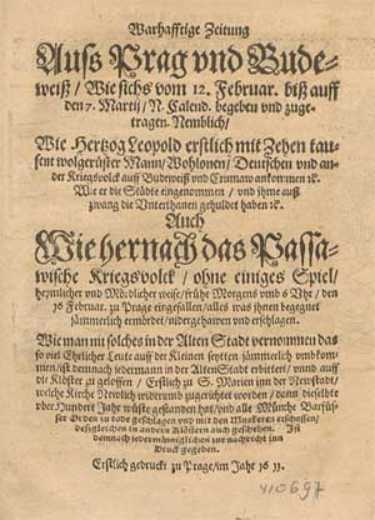 Warhafftige Zeitung
Auss Prag vnd Bude-
weiß / Wie sichs vom 12. Februar. biß auff
den 7. Martij / N. Calend. begeben vnd zuge-
tragen. Nemblich /
Wie Hertzog Leopold erstlich mit Zehen tau-
sent wolgerüster Mann / Wohlonen / Deutschen vnd an-
der Kriegsvolck auff Budweiß vnd Crumaw ankommen ꝛc.
Wie er die Städte eingenommen / vnd jhme auß
zwang die Vnterthanen gehuldet haben ꝛc.
Auch
Wie hernach das Passa-
wische Kriegsvolck / ohne einiges Spiel /
heymlicher vnd Mördlicher weise / frühe Morgens vmb 6 Vhr / den
16 Februar. zu Prage eingefallen / alles was jhnen begegnet
jämmerlich ermördet / nidergehawen vnd erschlagen.
Wie man nu solches in der Alten Stadt vernommen das
so viel Ehrlicher Leute auff der Kleinen seytten jämmerlich vmbkom-
men / ist demnach jedermann in der Alten Stadt erbittert / vnnd auff
die Klöster zu geloffen / Erstlich zu S. Marien inn der Newstadt /
welche Kirche Newlich widerumb zugerichtet worden / dann dieselbte
vber Hundert Jahr wüste gestanden hat / vnd alle Münche Barfüs-
ser Orden zu tode geschlagen vnd mit den Musketen erschossen /
desgleichen in andern Klöstern auch geschehen. Ist
demnach jedermänniglichen zur nachricht inn
Druck gegeben.
Erstlich gedruckt zu Prage / im Jahr 1611.
410697